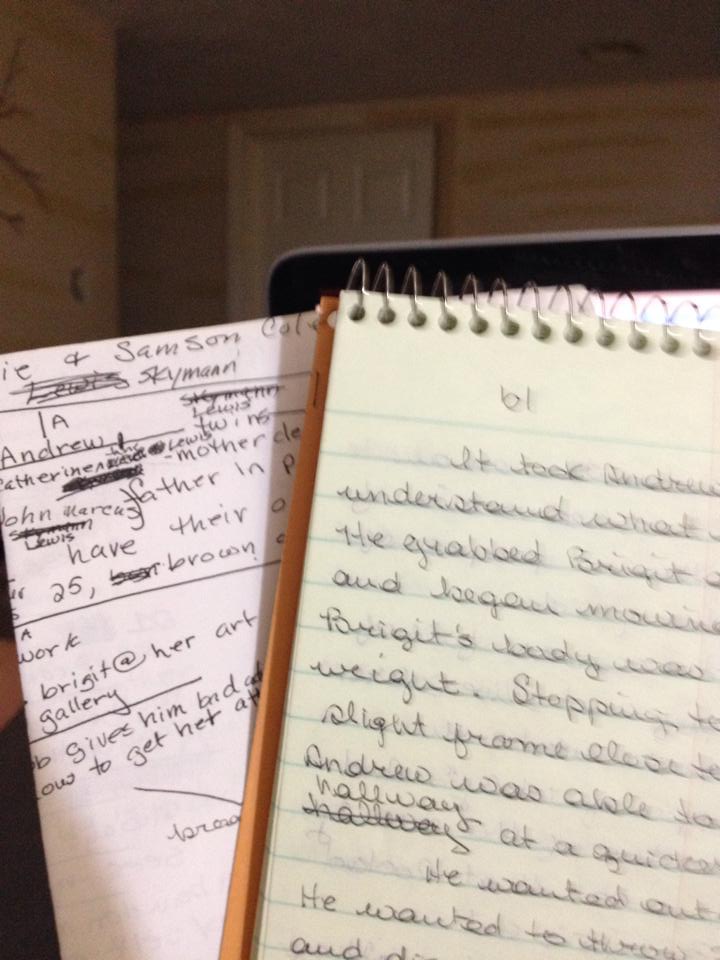 ie & Samson Cole
Lewis Skymann
1A
Skymann
Lewis
Andrew
twins
Lewis - mother de
atherine
father in p
John Marcus
Skymann
Lewis
have their o
25, brown
A
work
brigit@ her art
gallery
ob gives him bad ad
ow to get her att
61
It took Andrew
understand what
He grabbed Brigit a
and began moving
Brigit's body was
weight. Stopping to
slight frame close to
Andrew was able to
hallway
hallway at a quicker
He wanted out
He wanted to throw
and di